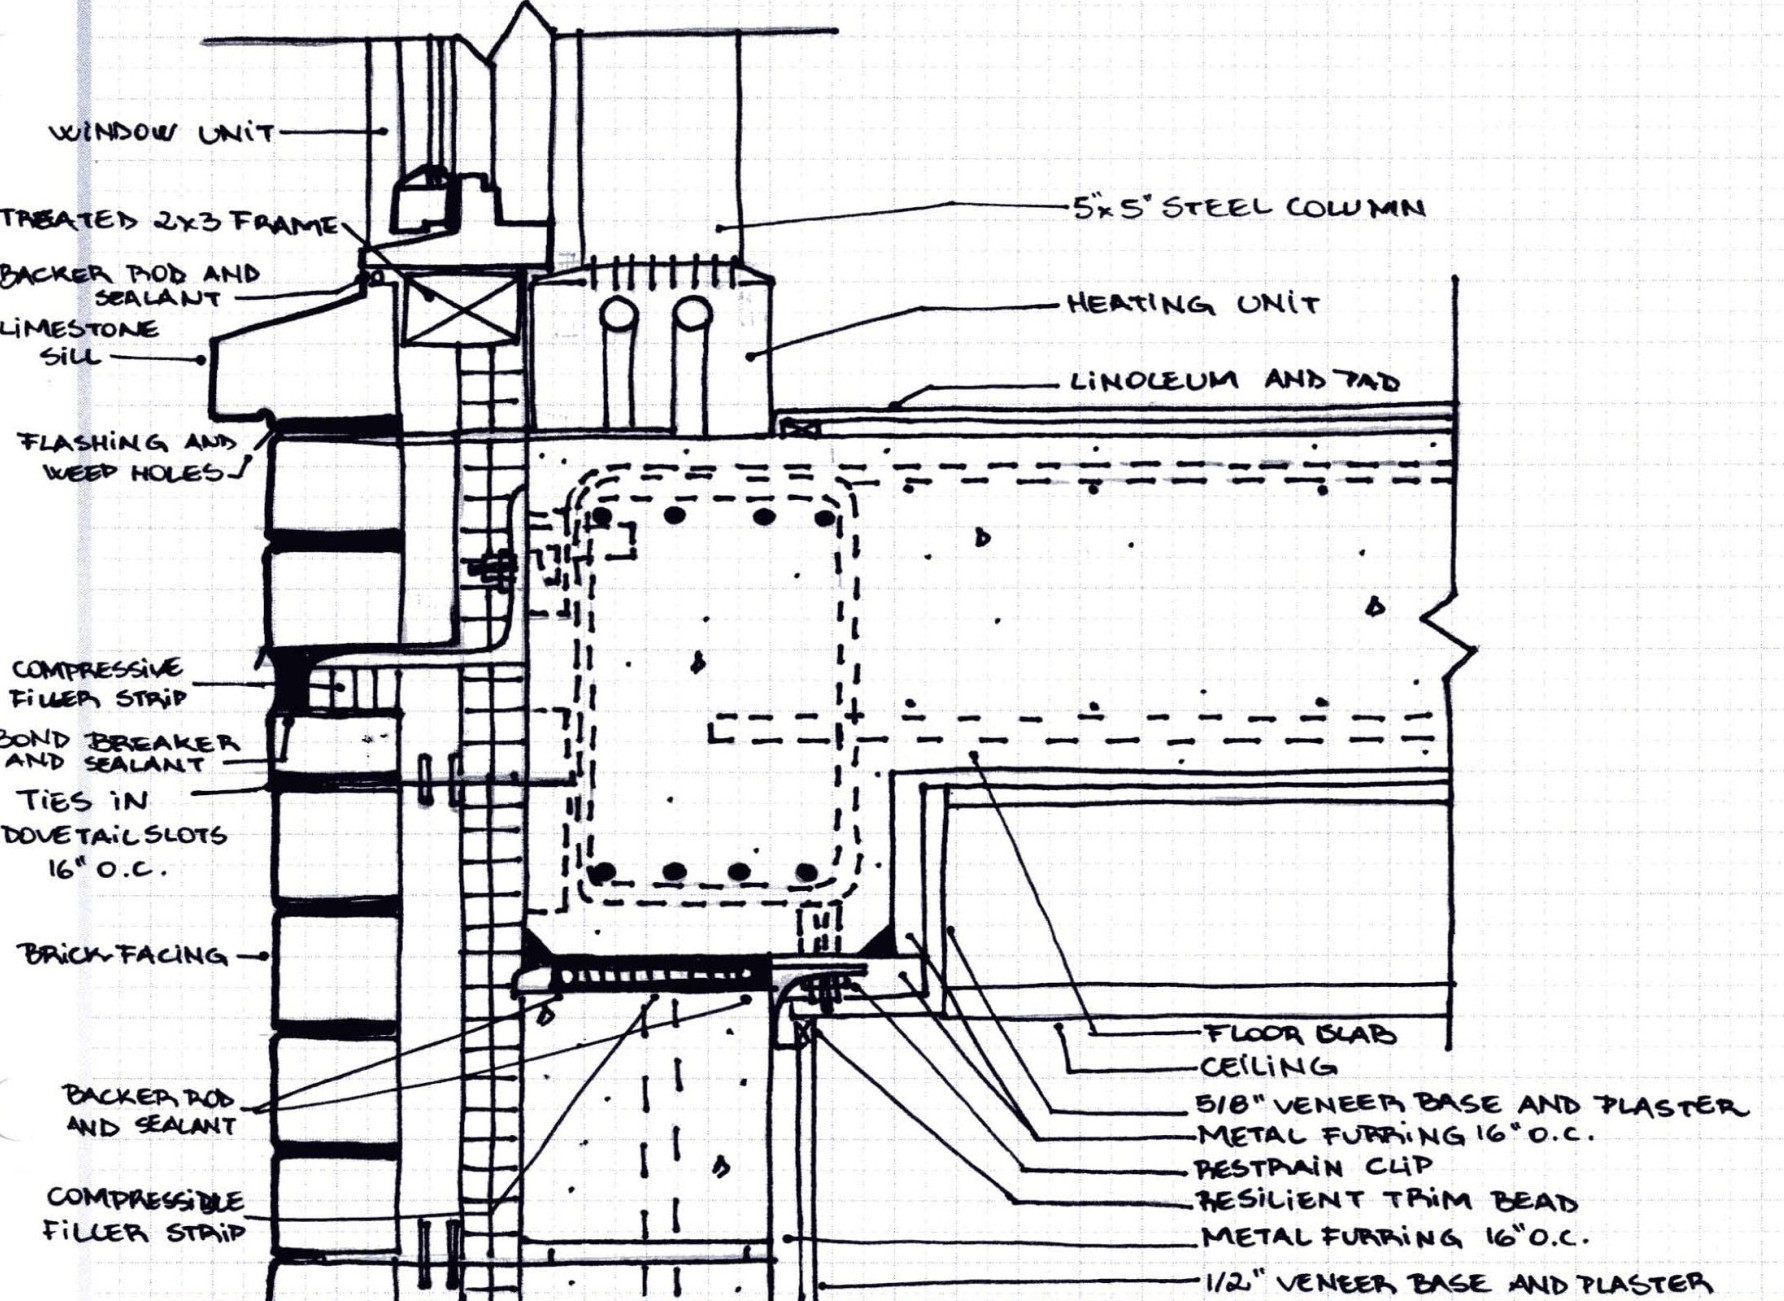 WINDOW UNIT
TREATED 2x3 FRAME
BACKER ROD AND
SEALANT
LIMESTONE
SILL
FLASHING AND
WEEP HOLES
COMPRESSIVE
FILLER STRIP
BOND BREAKER
AND SEALANT
TIES IN
DOVETAIL SLOTS
16" O.C.
BRICK FACING
BACKER ROD
AND SEALANT
COMPRESSIBLE
FILLER STRIP
5"x5" STEEL COLUMN
HEATING UNIT
LINOLEUM AND PAD
FLOOR SLAB
CEILING
5/8" VENEER BASE AND PLASTER
METAL FURRING 16" O.C.
RESTRAIN CLIP
RESILIENT TRIM BEAD
METAL FURRING 16" O.C.
1/2" VENEER BASE AND PLASTER